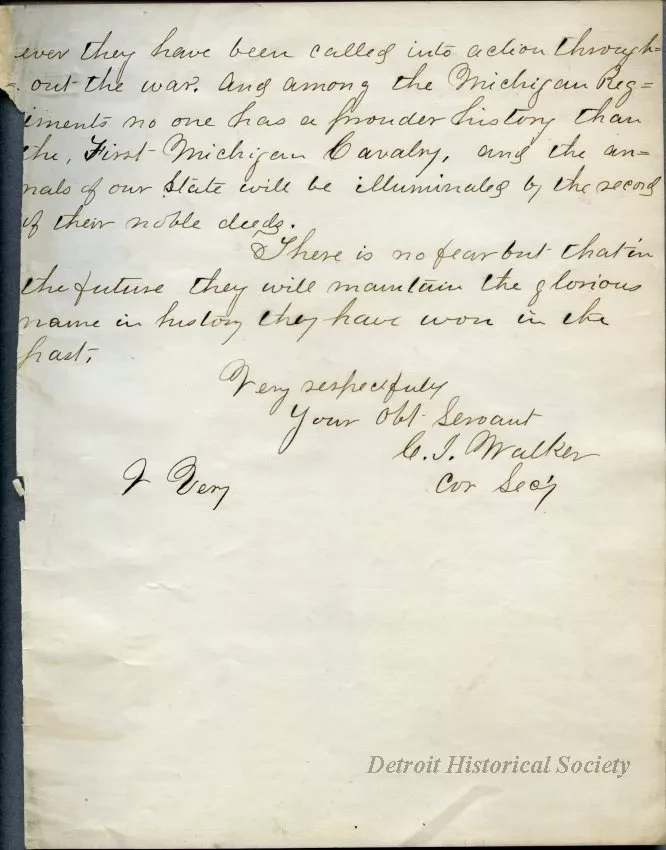 ever they have been called into action through=
out the war. And among the Michigan Reg=
iments no one has a prouder history than
the, First Michigan Cavalry, and the an=
nals of our State will be illuminated by the record
of their noble deeds.
There is no fear but that in
the future they will maintain the glorious
name in history they have won in the
past.
Very respectfuly
Your Obt Servant
C. I. Walker
Cor Sec'y
V Very
Detroit Historical Society